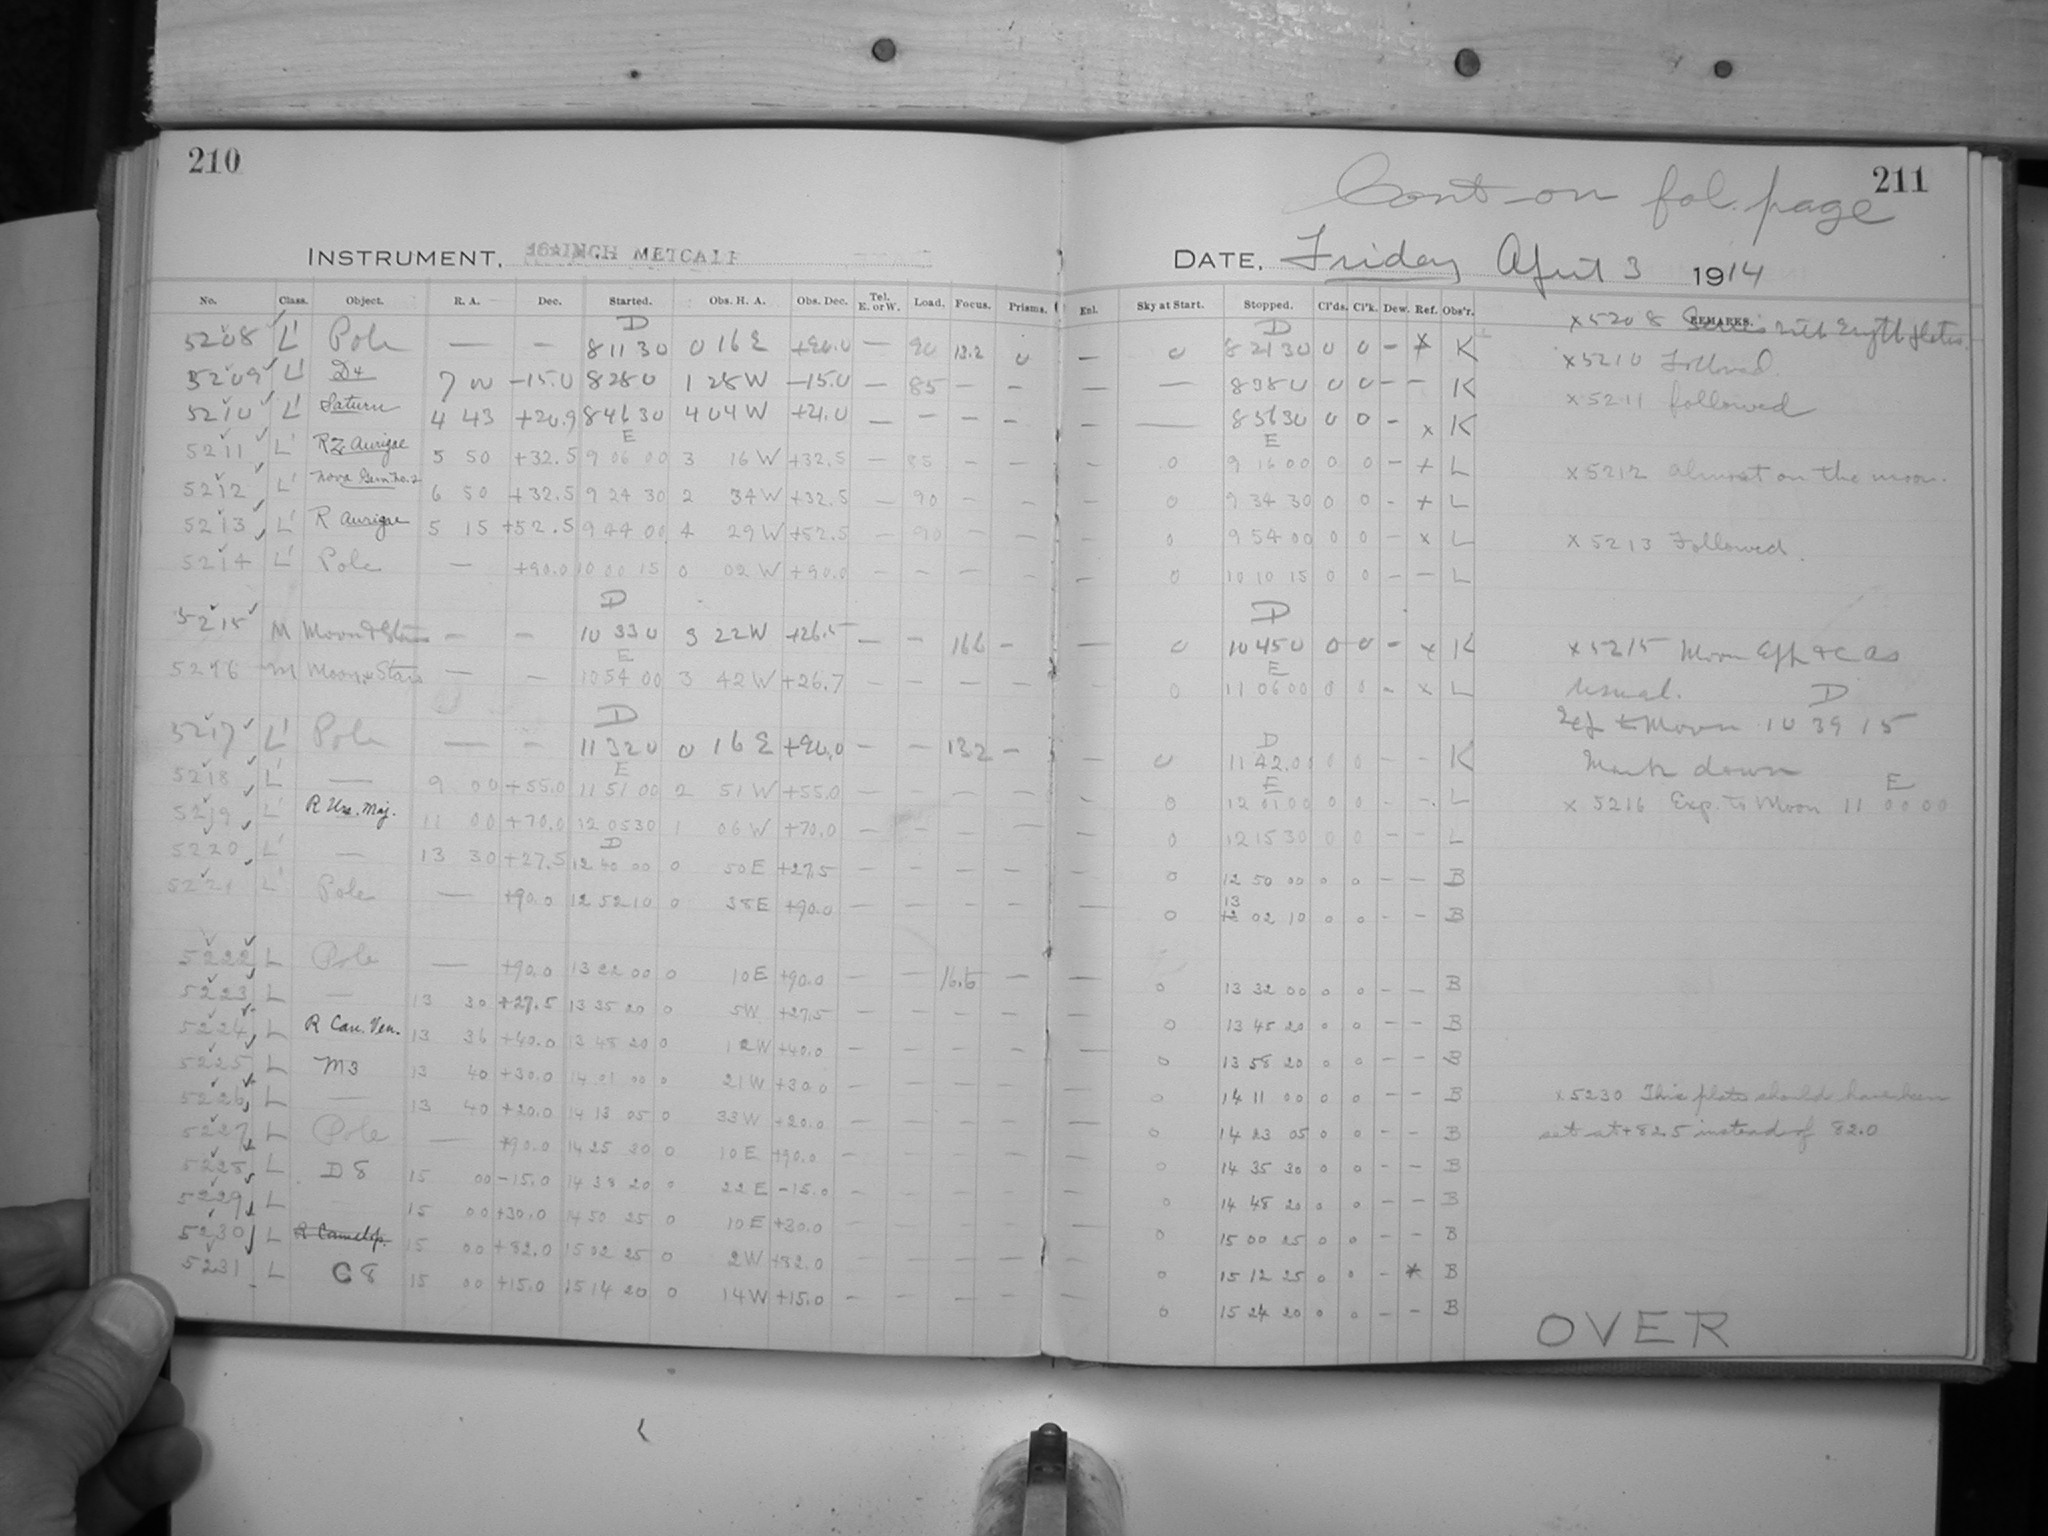 210
INSTRUMENT, 16-INCH METCALF
No. Class. Object. R. A. Dec. Started. Obs. H. A. Obs. Dec. Tel. E. or W. Load. Focus. Prisms.
D
5208 L' Pole — — 8 11 30 0 16 E +90.0 — 90 13.2 0
5209 L' D4 7 00 −15.0 8 28 0 1 28 W −15.0 — 85 — —
5210 L' Saturn 4 43 +20.9 8 46 30 4 04 W +21.0 — — — —
E
5211 L' RZ Aurigae 5 50 +32.5 9 06 00 3 16 W +32.5 — 85 — —
5212 L' Nova Gem. No. 2 6 50 +32.5 9 24 30 2 34 W +32.5 — 90 — —
5213 L' R Aurigae 5 15 +52.5 9 44 00 4 29 W +52.5 — 90 — —
5214 L' Pole — +90.0 10 00 15 0 02 W +90.0 — — — —
D
5215 M Moon & Stars — — 10 33 0 3 22 W +26.5 — — 16.6 —
E
5216 M Moon & Stars — — 10 54 00 3 42 W +26.7 — — — —
D
5217 L' Pole — — 11 32 0 0 16 E +90.0 — — 13.2 —
E
5218 L' — 9 00 +55.0 11 51 00 2 51 W +55.0 — — — —
5219 L' R Urs. Maj. 11 00 +70.0 12 05 30 1 06 W +70.0 — — — —
D
5220 L' — 13 30 +27.5 12 40 00 0 50 E +27.5 — — — —
5221 L' Pole — +90.0 12 52 10 0 38 E +90.0 — — — —
5222 L Pole — +90.0 13 22 00 0 10 E +90.0 — — 16.6 —
5223 L — 13 30 +27.5 13 35 20 0 5 W +27.5 — — — —
5224 L R Can. Ven. 13 36 +40.0 13 48 20 0 12 W +40.0 — — — —
5225 L M3 13 40 +30.0 14 01 00 0 21 W +30.0 — — — —
5226 L — 13 40 +20.0 14 13 05 0 33 W +20.0 — — — —
5227 L Pole — +90.0 14 25 30 0 10 E +90.0 — — — —
5228 L D8 15 00 −15.0 14 38 20 0 22 E −15.0 — — — —
5229 L 15 00 +30.0 14 50 25 0 10 E +30.0 — — — —
5230 L R Camelop. 15 00 +82.0 15 02 25 0 2 W +82.0 — — — —
5231 L C8 15 00 +15.0 15 14 20 0 14 W +15.0 — — — —
211
Cont on fol. page
DATE, Friday April 3 1914
Enl. Sky at Start. Stopped. Cl'ds. Cl'k. Dew. Ref. Obs'r. REMARKS.
D
— 0 8 21 30 0 0 — x K
— 8 38 0 0 0 — — K
— 8 56 30 0 0 — x K
E
0 9 16 00 0 0 — x L
0 9 34 30 0 0 — x L
0 9 54 00 0 0 — x L
— 0 10 10 15 0 0 — — L
D
— 0 10 45 0 0 0 — x K
E
— 0 11 06 00 0 0 — x L
D
— 0 11 42.0 0 0 — — K
E
— 0 12 01 00 0 0 — — L
— 0 12 15 30 0 0 L
— 0 12 50 00 0 0 — — B
13
— 0 12 02 10 0 0 — — B
— 0 13 32 00 0 0 — — B
— 0 13 45 20 0 0 — — B
— 0 13 58 20 0 0 — — B
— 0 14 11 00 0 0 — — B
— 0 14 23 05 0 0 — — B
— 0 14 35 30 0 0 — — B
— 0 14 48 20 0 0 — — B
— 0 15 00 25 0 0 — — B
— 0 15 12 25 0 0 — * B
— 0 15 24 20 0 0 — — B
x 5208 Series with
x 5210 Followed.
x 5211 followed
x 5212 Almost on the moon.
x 5213 Followed.
x 5215 Moon Eph & C as
usual. D
to Moon 10 39 15
Mark down
E
x 5216 Exp. to Moon 11 00 00
x 5230 This plate should have been
set at +82.5 instead of 82.0
OVER